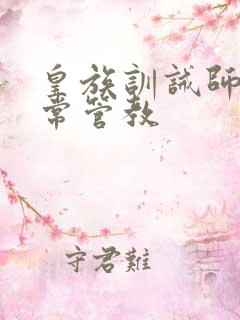 皇族訓誡師
常管教
守君難